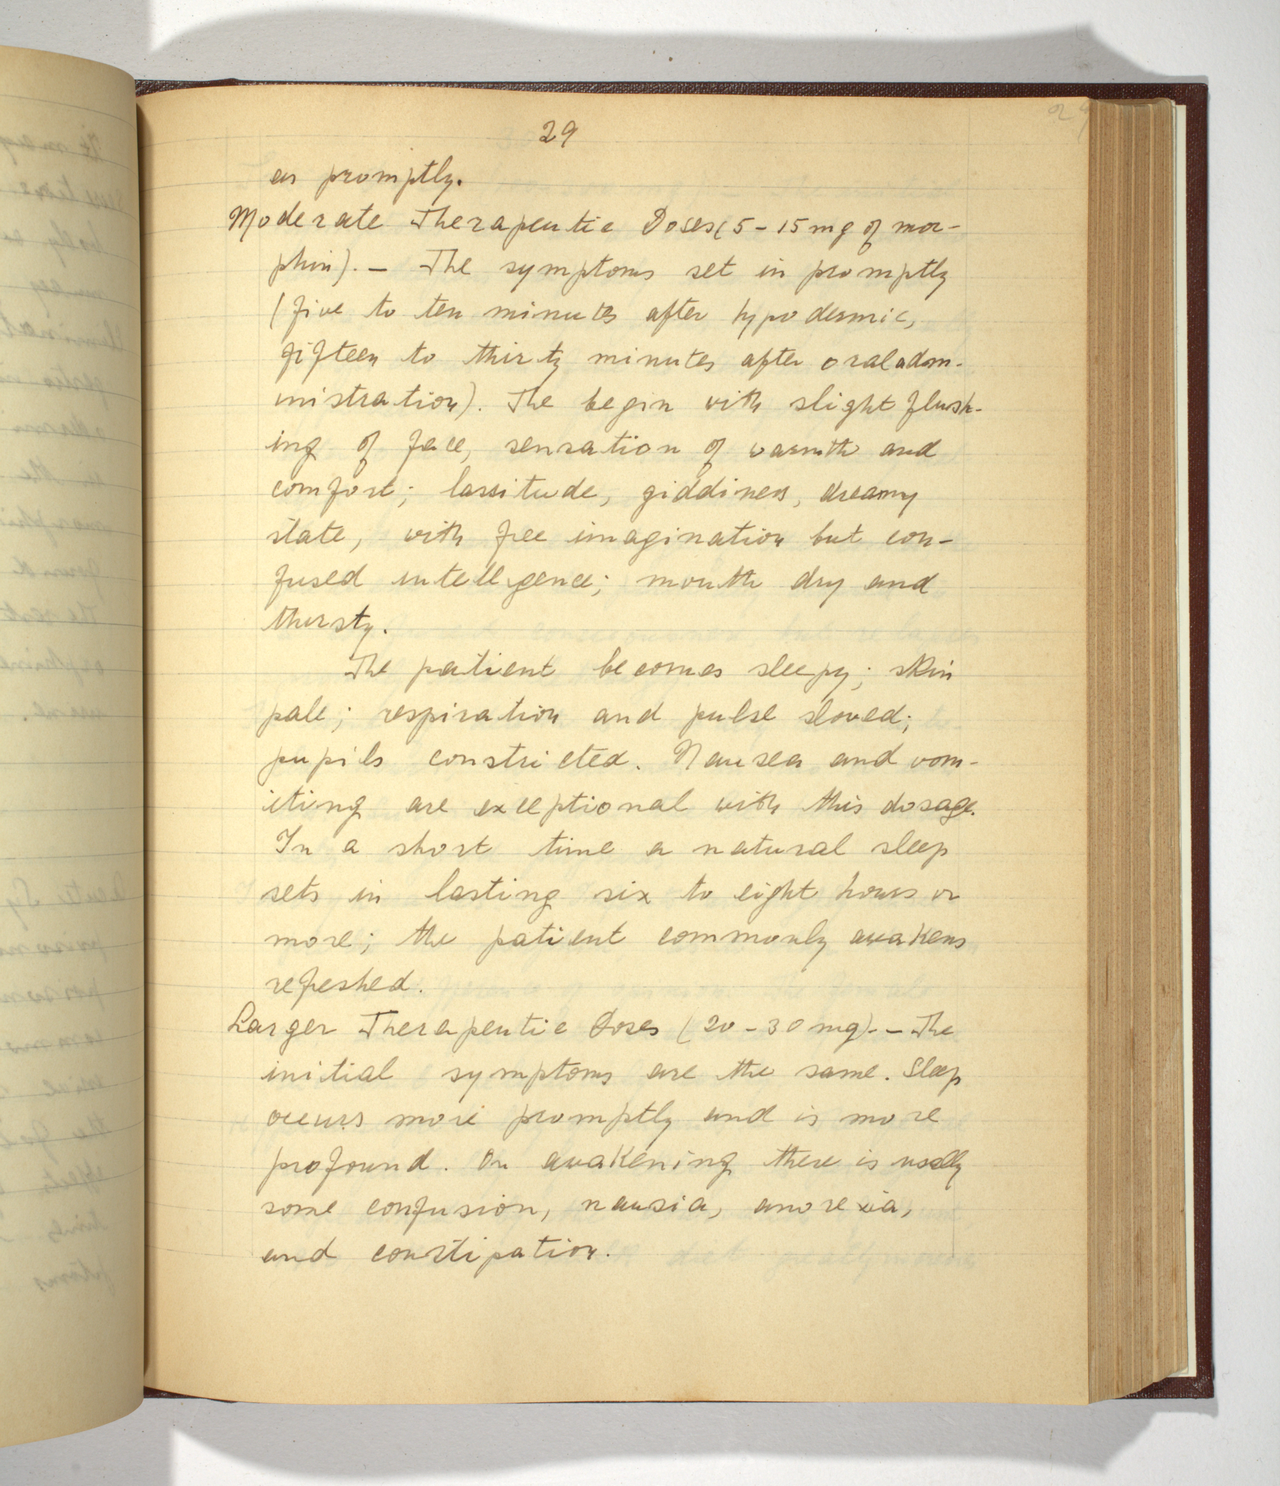 29
as promptly.
Moderate Therapeutic Doses (5-15 mg of mor-
phin). — The symptoms set in promptly
(five to ten minutes after hypodermic,
fifteen to thirty minutes after oral adm-
inistration). The begin with slight flush-
ing of face, sensation of warmth and
comfort; lassitude, giddiness, dreamy
state, with free imagination but con-
fused intelligence; mouth dry and
thirsty.
The patient becomes sleepy; skin
pale; respiration and pulse slowed;
pupils constricted. Nausea and vom-
iting are exceptional with this dosage.
In a short time a natural sleep
sets in lasting six to eight hours or
more; the patient commonly awakens
refeshed.
Larger Therapeutic Doses (20-30 mg). — The
initial symptoms are the same. Sleep
occurs more promptly and is more
profound. On awakening there is usally
some confusion, nausia, anorexia,
and constipation.